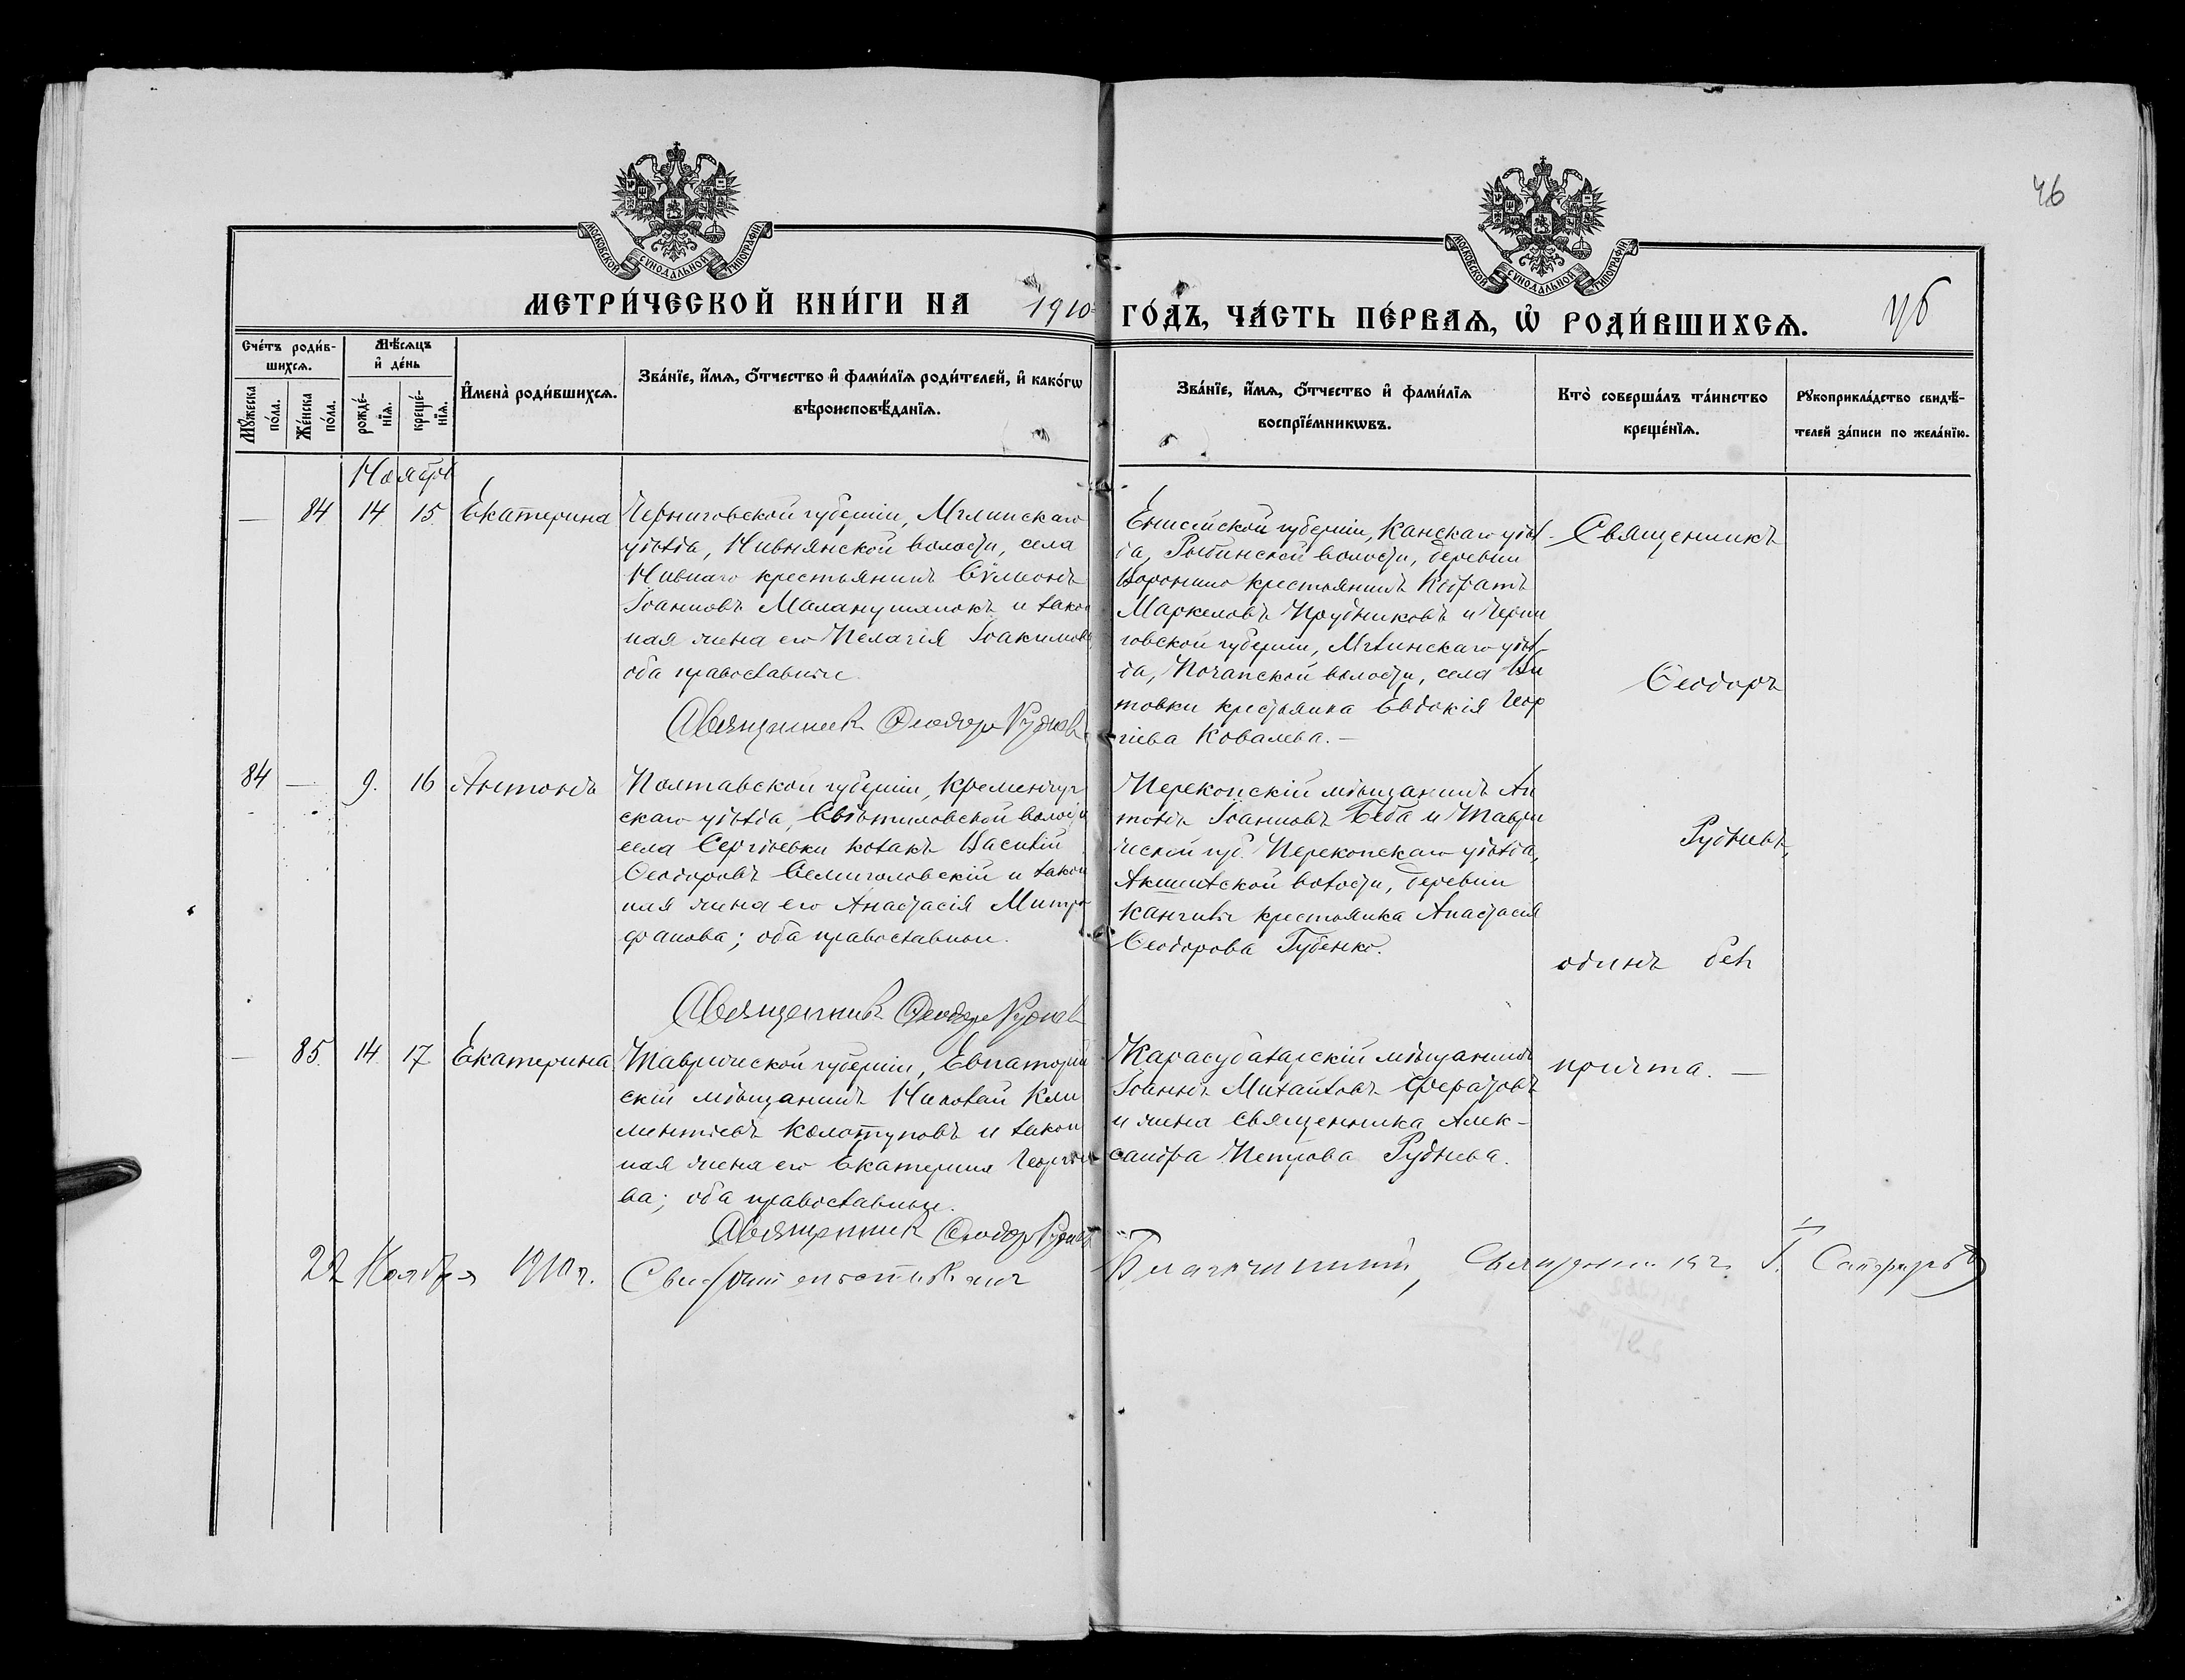 46
МОСКОВСКОЙ СѴНОДАЛЬНОЙ ТИПОГРАФІИ
МОСКОВСКОЙ СѴНОДАЛЬНОЙ ТИПОГРАФІИ
МЕТРИ́ЧЕСКОЙ КНИ́ГИ НА 1910 ГО́ДЪ, ЧА́СТЬ ПЕ́РВАѦ, Ѡ РОДИ́ВШИХСѦ.
Сче́тъ роди́в-
шихсѧ.
Мꙋ́жеска по́ла.
Же́нска по́ла.
Мѣ́сѧцъ
и҆ де́нь
рожде́-
нїѧ.
креще́-
нїѧ.
И҆мена̀ роди́вшихсѧ.
Зва́нїе, и҆́мѧ, ѻ҆́тчество и҆ фами́лїѧ роди́телей, и҆ како́гѡ
вѣроисповѣ́данїѧ.
Зва́нїе, и҆́мѧ, ѻ҆́тчество и҆ фами́лїѧ
воспрїе́мникѡвъ.
Кто̀ соверша́лъ та́инство
креще́нїѧ.
Рꙋкоприкла́дство свидѣ́-
телей за́писи по жела́нїю.
Ноябрь
— 84 14 15. Екатерина
Черниговской губерніи, Мглинскаго
уѣзда, Нивнянской волости, села
Нивнаго крестьянинъ Сѵмеонъ
Іоанновъ и закон
ная жена его Пелагія Іоакимова
оба православные.
Священникъ Ѳеодоръ Рудневъ
Енисейской губерніи, Канскаго уѣз
да, Рыбинской волости, деревни
крестьянинъ
Маркеловъ Прудниковъ и Черни
говской губерніи, Мглинскаго уѣз
да, Почапской волости, села Ви
товки крестьянка Евдокія Геор
гіева Ковалева. —
Священникъ
Ѳеодоръ
Рудневъ,
одинъ безъ
причта. —
84 — 9. 16 Антоній
Полтавской губерніи, Кременчуг
скаго уѣзда, волости
села Сергіевки козакъ Василій
Ѳеодоровъ Семиголовскій и закон
ная жена его Анастасія Митро
фанова; оба православные.
Священникъ Ѳеодоръ Рудневъ
Перекопскій мѣщанинъ Ан
тоній Іоанновъ Беба и Таври
ческой губ. Перекопскаго уѣзда,
Акшеихской волости, деревни
крестьянка Анастасія
Ѳеодорова Губенко.
— 85. 14. 17 Екатерина
Таврической губерніи, Евпаторій
скій мѣщанинъ Николай Кли
ментіевъ Колотуповъ и закон
ная жена его Екатерина Георгіе
ва; оба православные.
Священникъ Ѳеодоръ Рудневъ
Карасубазарскій мѣщанинъ
Іоаннъ Михайловъ
и жена священника Алек-
сандра Петрова Руднева.
22 Ноября 1910 г. Свидѣтельствовалъ Благочинный, Священникъ І.